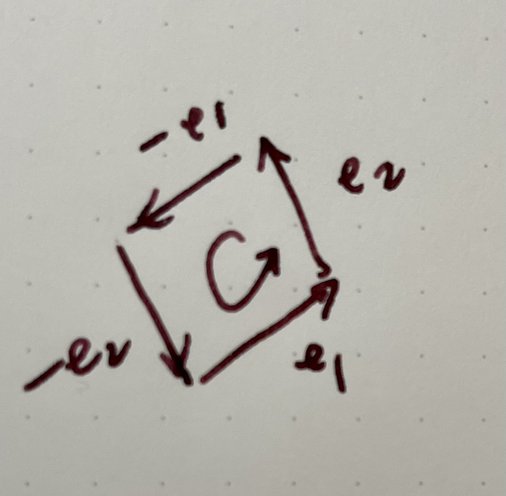 -e1
e2
-e2
e1